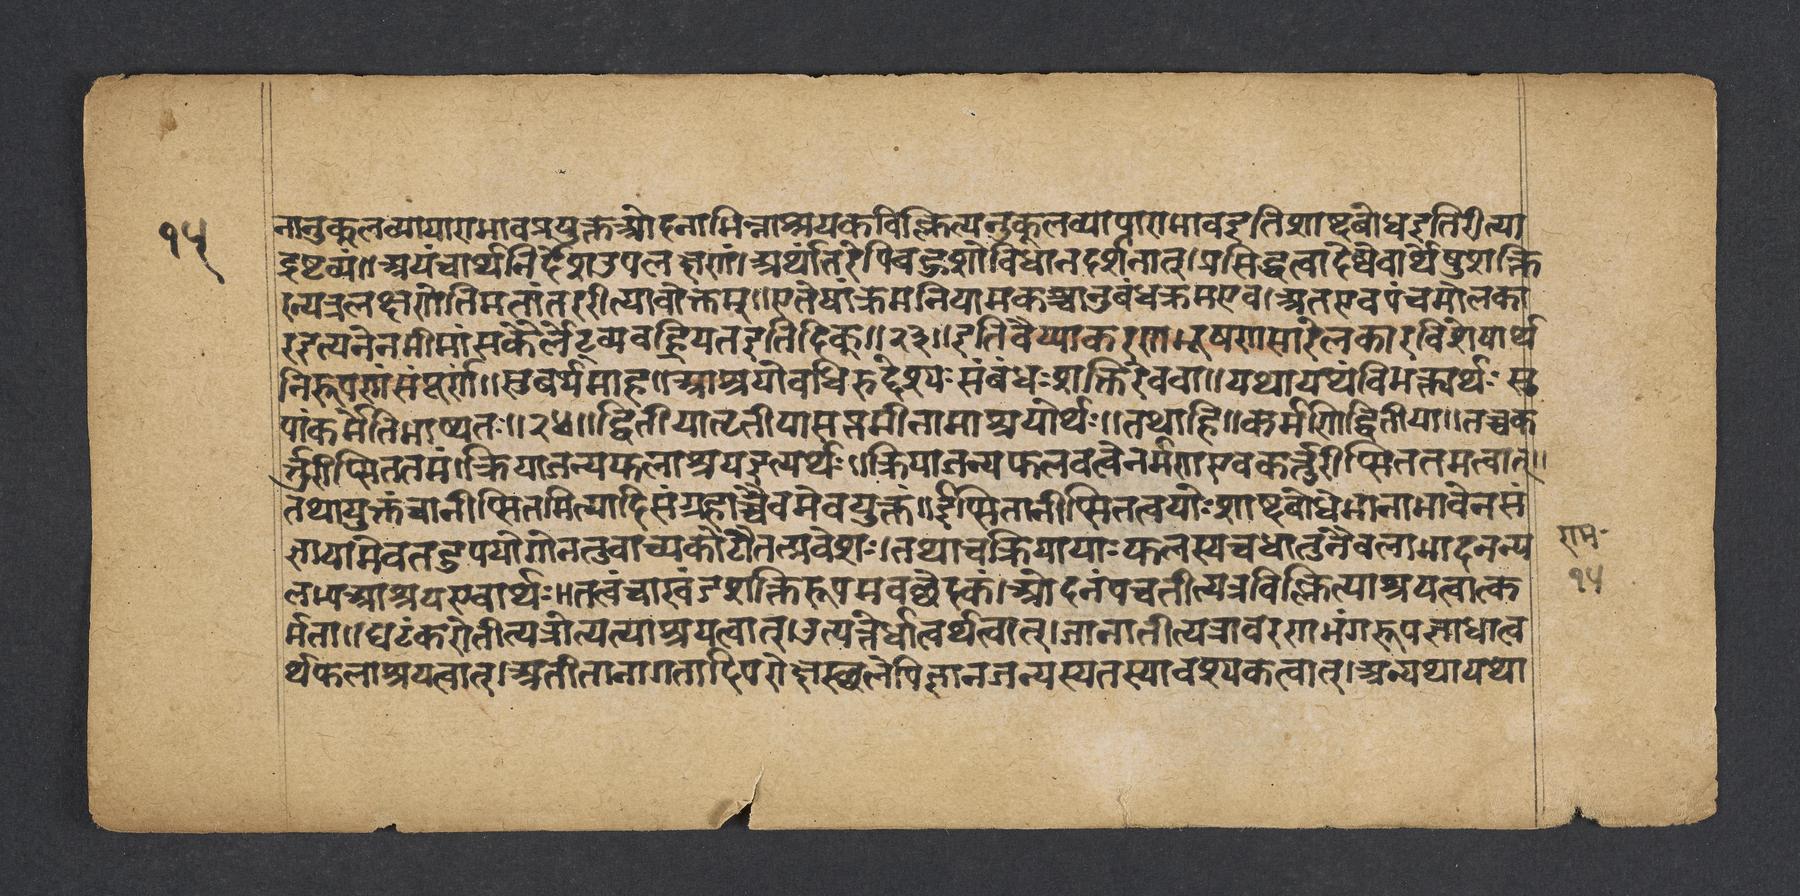 १५
नानुकूलव्यापाराभावप्रयुक्तओदनाभिन्नाश्रयकविक्लित्यनुकूलव्यापाराभावइतिशाब्दबोधइतिरीत्या
द्रष्टव्यं॥अयंचार्थनिर्देशउपलक्षणं।अर्थांतरेपिबहुशोविधानदर्शनात्।प्रसिद्धत्वादेष्वेवार्थेषुशक्ति
रन्यत्रलक्षणेतिमतांतररीत्यावोक्तम्॥एतेषांक्रमनियामकश्चानुबंधक्रमएव।अतएवपंचमोलका
रइत्यनेनमीमांसकैर्लेट्व्यवह्रियतइतिदिक्॥२३॥इतिवैय्याकरणभूषणसारेलकारविशेषार्थ
निरूपणंसंपूर्णं॥सुबर्थमाह॥आश्रयोवधिरुद्देश्यःसंबंधःशक्तिरेववा॥यथायथंविभक्त्यर्थःसु
पांकर्मेतिभाष्यतः॥२४॥द्वितीयातृतीयासप्तमीनामाश्रयोर्थः॥तथाहि॥कर्मणिद्वितीया॥तच्चक
र्त्तुरीप्सिततमं।क्रियाजन्यफलाश्रयइत्यर्थः॥क्रियाजन्यफलवत्वेनकर्मणएवकर्त्तुरीप्सिततमत्वात्॥
तथायुक्तंचानीप्सितमित्यादिसंग्रहाच्चैवमेवयुक्तं॥ईप्सितानीप्सितत्वयोःशाब्दबोधेभानाभावेनसं
ज्ञायामेवतदुपयोगोनतुवाच्यकोटौतत्प्रवेशः।तथाचक्रियायाःफलस्यचधातुनैवलाभादनन्य
लभ्यआश्रयएवार्थः॥तत्वंचाखंडशक्तिरूपमवछेदकं।ओदनंपचतीत्यत्रविक्लित्याश्रयत्वात्क
र्मता॥घटंकरोतीत्यत्रोत्पत्याश्रयत्वात्।उत्पत्तेर्धात्वर्थत्वात्।जानातीत्यत्रावरणभंगरूपज्ञाधात्व
र्थफलाश्रयत्वात्।अतीतानागतादिपरोक्षस्थलेपिज्ञानजन्यस्यतस्यावश्यकत्वात्।अन्यथायथा
राम-
१५